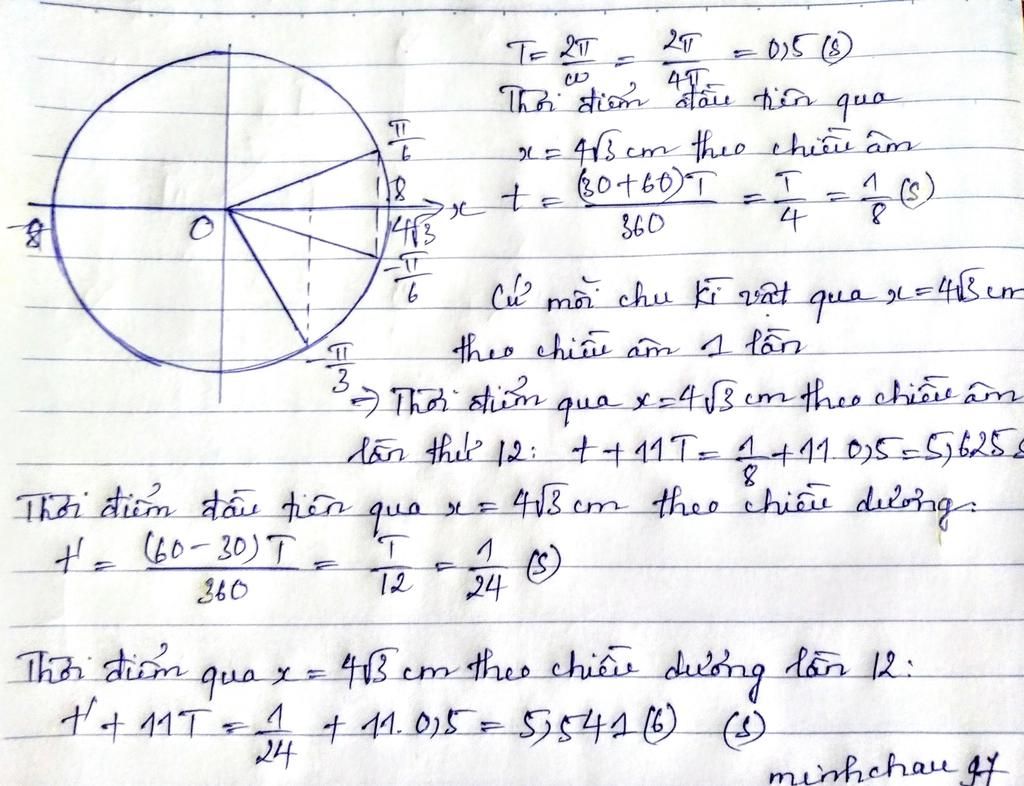 T = 2π/ω = 2π/4π = 0,5 (s)
Thời điểm đầu tiên qua
x = 4√3 cm theo chiều âm
t = (30+60)T/360 = T/4 = 1/8 (s)
π/6
8
-8
O
4√3
x
-π/6
-π/3
Cứ mỗi chu kì vật qua x = 4√3 cm
theo chiều âm 1 lần
=> Thời điểm qua x = 4√3 cm theo chiều âm
lần thứ 12: t + 11T = 1/8 + 11.0,5 = 5,625s
Thời điểm đầu tiên qua x = 4√3 cm theo chiều dương:
t' = (60-30)T/360 = T/12 = 1/24 (s)
Thời điểm qua x = 4√3 cm theo chiều dương lần 12:
t' + 11T = 1/24 + 11.0,5 = 5,541(6) (s)
minhchau 97